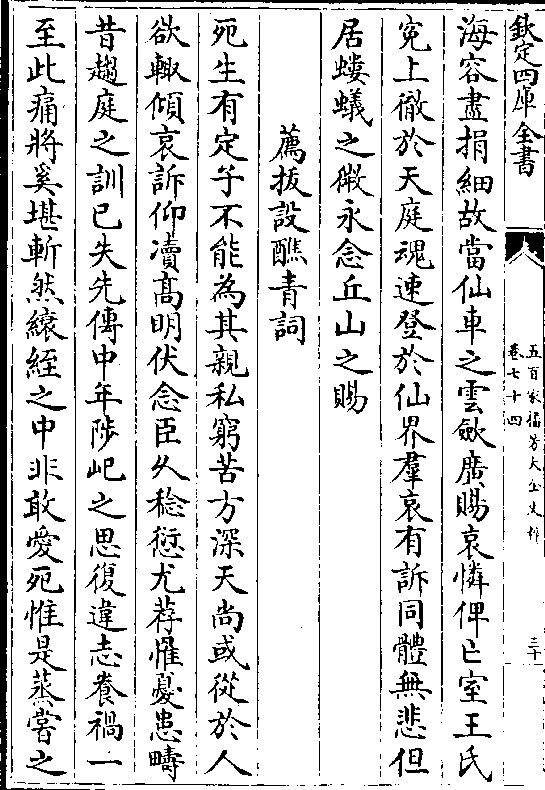 欽定四庫全書
五百家播芳大全文粹
卷七十四
三十
海容盡捐細故當仙車之雲斂廣賜哀憐俾亡室王氏
寃上徹於天庭魂速登於仙界羣哀有訴同體無悲但
居螻蟻之微永念丘山之賜
薦拔設醮青詞
死生有定子不能為其親私窮苦方深天尚或從於人
欲輙傾哀訴仰凟髙明伏念臣久稔愆尤荐罹憂患疇
昔趨庭之訓已失先傳中年陟屺之思復違志養禍一
至此痛將奚堪斬然縗絰之中非敢愛死惟是蒸嘗之